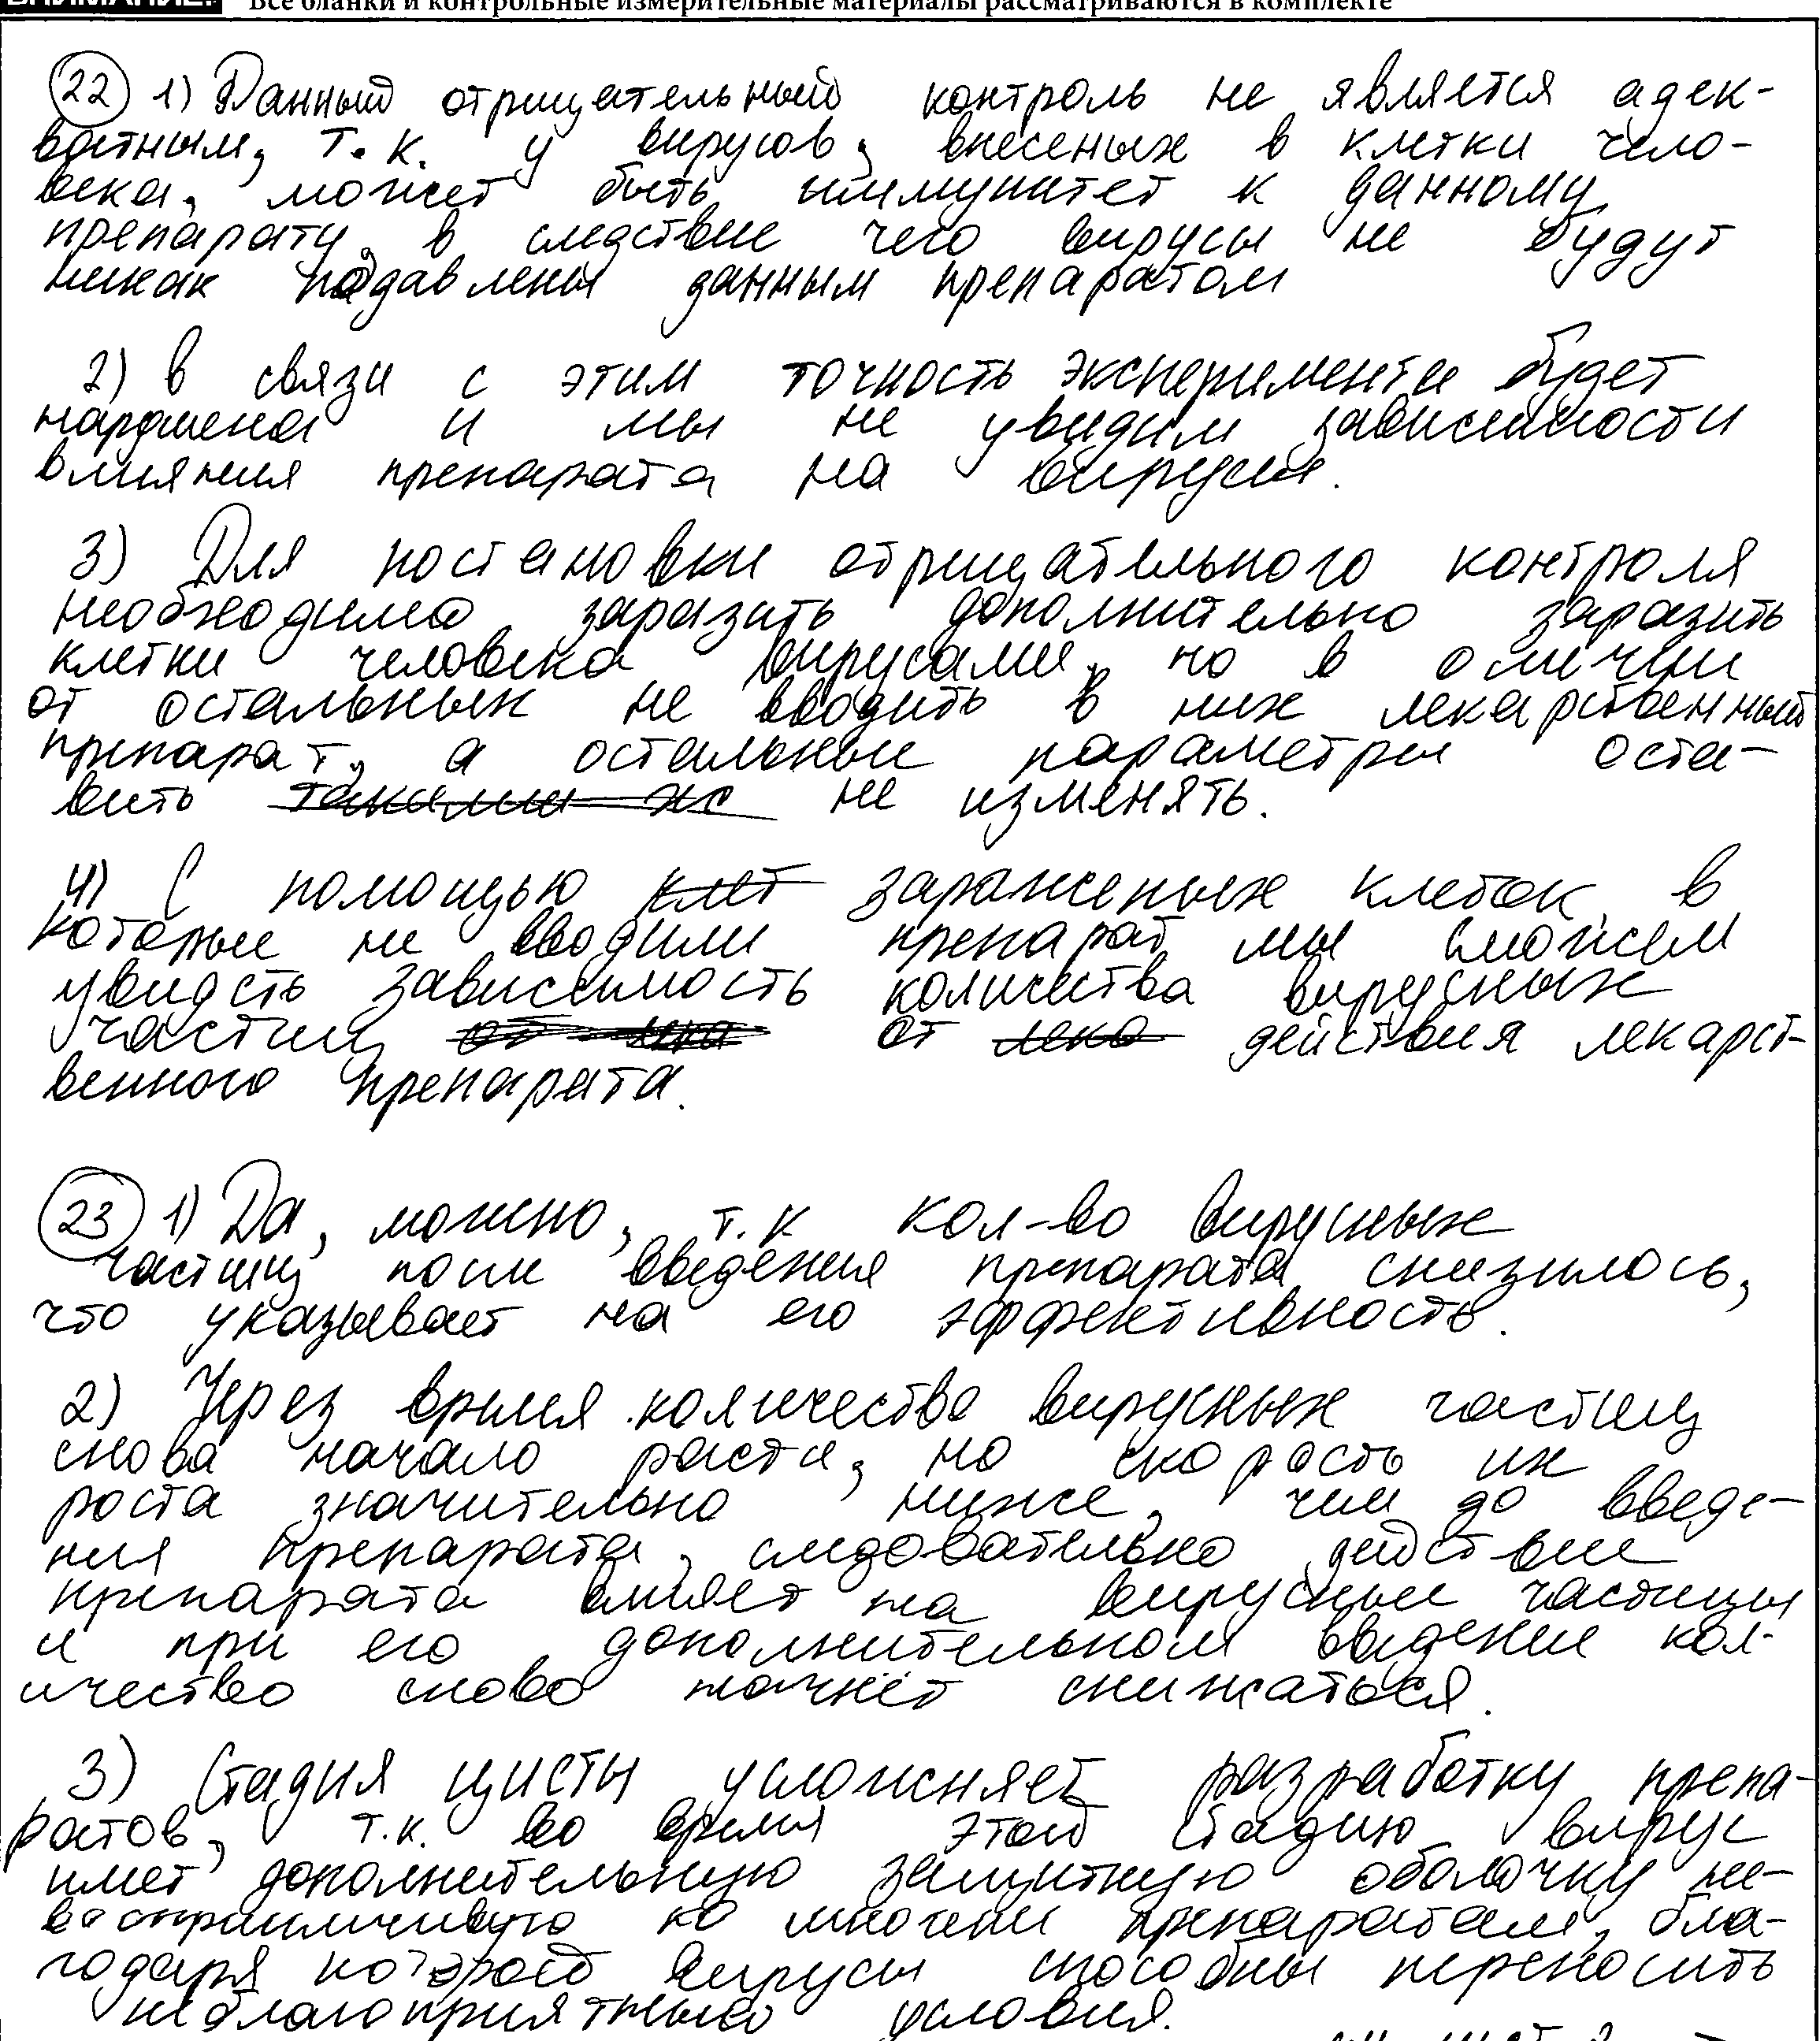 ВНИМАНИЕ! Все бланки и контрольные измерительные материалы рассматриваются в комплекте
22 1) Данный отрицательный контроль не является адек-
ватным, т.к. у вирусов, внесеных в клетки чело-
века, может быть иммунитет к данному
препарату, в следствие чего вирусы не будут
никак подавлены данным препаратом
2) в связи с этим точность эксперимента будет
нарушена и мы не увидим зависимости
влияния препарата на вирусы.
3) Для постановки отрицательного контроля
необходимо заразить дополнительно заразить
клетки человека вирусами, но в отличии
от остальных не вводить в них лекарственный
препарат, а остальные параметры оста-
вить такими же не изменять.
4) С помощью клет зараженных клеток, в
которые не вводили препарат мы сможем
увидеть зависимость количества вирусных
частиц от лека от леко действия лекарст-
венного препарата.
23 1) Да, можно, т.к кол-во вирусных
частиц после введения препарата снизилось,
что указывает на его эффективность.
2) Через время количество вирусных частиц
снова начало расти, но скорость их
роста значительно ниже, чем до введе-
ния препарата, следовательно действие
препарата влияет на вирусные частицы
и при его дополнительном введение кол-
ичество снова начнёт снижаться.
3) Стадия цисты усложняет разработку препа-
ратов, т.к. во время этой стадию вирус
имет дополнительную защитную оболочку не-
восприимчивую ко многим препаратам, бла-
годаря которой вирусы способны переносить
неблагоприятные условия.